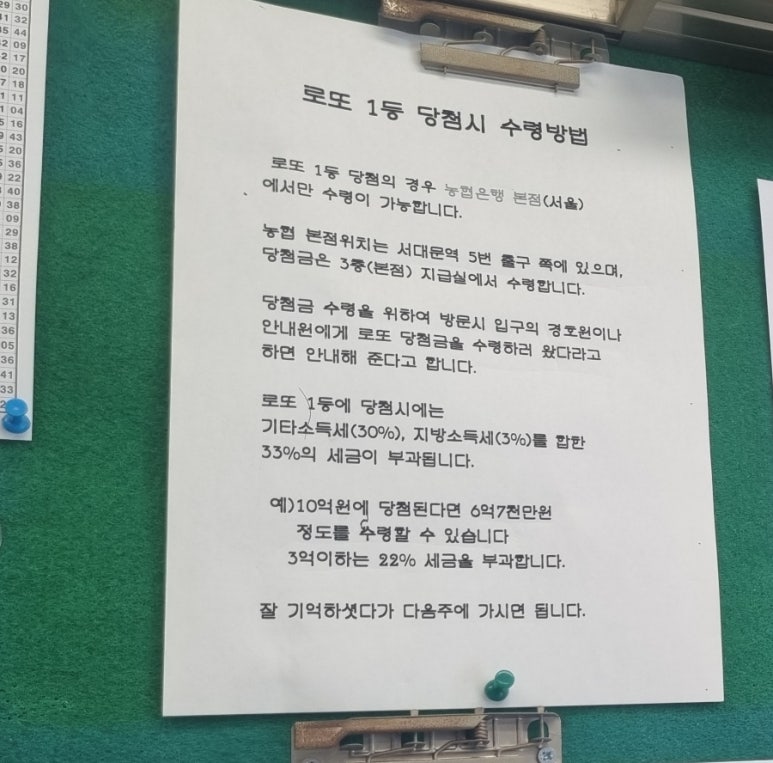 로또 1등 당첨시 수령방법
로또 1등 당첨의 경우 농협은행 본점(서울)
에서만 수령이 가능합니다.
농협 본점위치는 서대문역 5번 출구 쪽에 있으며,
당첨금은 3층(본점) 지급실에서 수령합니다.
당첨금 수령을 위하여 방문시 입구의 경호원이나
안내원에게 로또 당첨금을 수령하러 왔다라고
하면 안내해 준다고 합니다.
로또 1등에 당첨시에는
기타소득세(30%), 지방소득세(3%)를 합한
33%의 세금이 부과됩니다.
예)10억원에 당첨된다면 6억7천만원
정도를 수령할 수 있습니다
3억이하는 22% 세금을 부과합니다.
잘 기억하셧다가 다음주에 가시면 됩니다.
29 30
41 32
35 44
32 09
2 17
0 20
7 18
1 11
1 04
5 16
9 43
5 20
5 36
9 22
7 40
9 38
09
29
38
12
32
16
31
13
36
05
36
41
33